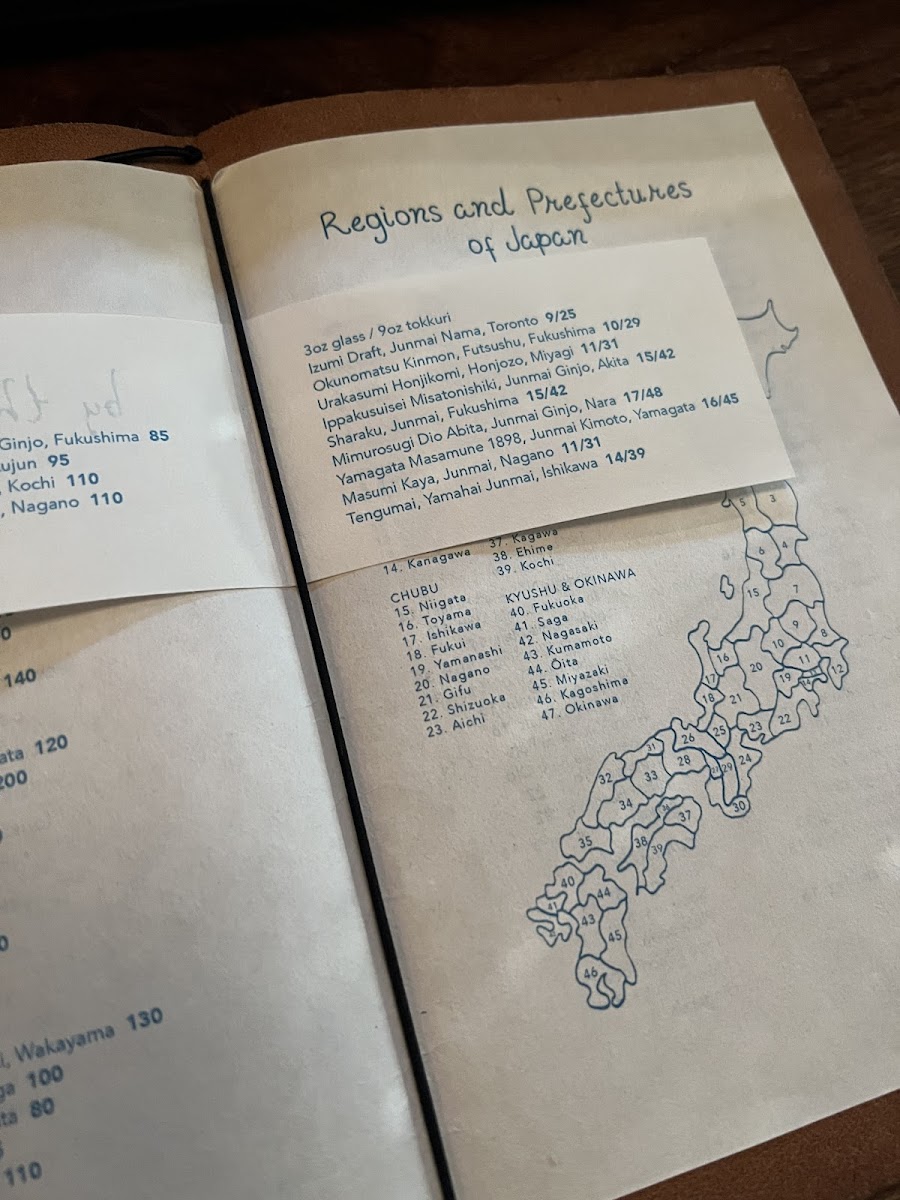 Ginjo, Fukushima 85
ujun 95
, Kochi 110
, Nagano 110
0
140
ata 120
200
0
i, Wakayama 130
ga 100
ta 80
110
Regions and Prefectures
of Japan
3oz glass / 9oz tokkuri
Izumi Draft, Junmai Nama, Toronto 9/25
Okunomatsu Kinmon, Futsushu, Fukushima 10/29
Urakasumi Honjikomi, Honjozo, Miyagi 11/31
Ippakusuisei Misatonishiki, Junmai Ginjo, Akita 15/42
Sharaku, Junmai, Fukushima 15/42
Mimurosugi Dio Abita, Junmai Ginjo, Nara 17/48
Yamagata Masamune 1898, Junmai Kimoto, Yamagata 16/45
Masumi Kaya, Junmai, Nagano 11/31
Tengumai, Yamahai Junmai, Ishikawa 14/39
14. Kanagawa
CHUBU
15. Niigata
16. Toyama
17. Ishikawa
18. Fukui
19. Yamanashi
20. Nagano
21. Gifu
22. Shizuoka
23. Aichi
37. Kagawa
38. Ehime
39. Kochi
KYUSHU & OKINAWA
40. Fukuoka
41. Saga
42. Nagasaki
43. Kumamoto
44. Oita
45. Miyazaki
46. Kagoshima
47. Okinawa
5 3
6 4
15 7
9
10 8
16 20 11
17 19 14 12
18 21
22
23
26 25
31 28 24
32 33 29
34 30
36 37
35 38 39
40 44
41 43
45
46